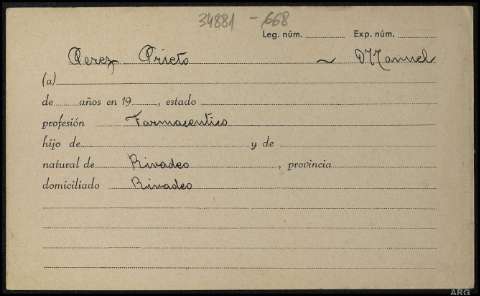 34881 - 668
Leg. núm. Exp. núm.
Perez Prieto ~ Manuel
(a)
de años en 19 , estado
profesión Farmaceutico
hijo de y de
natural de Rivadeo , provincia
domiciliado Rivadeo
ARG